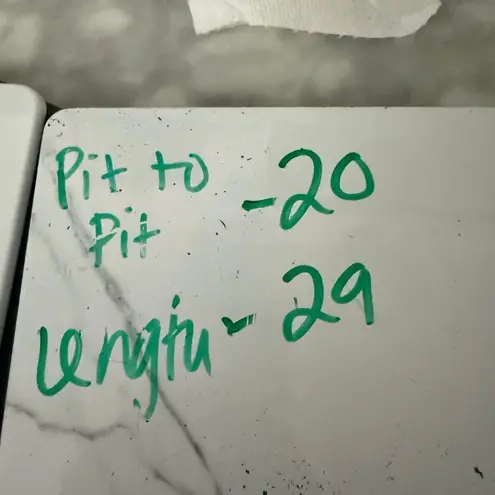 Pit to - 20
Pit
Length - 29